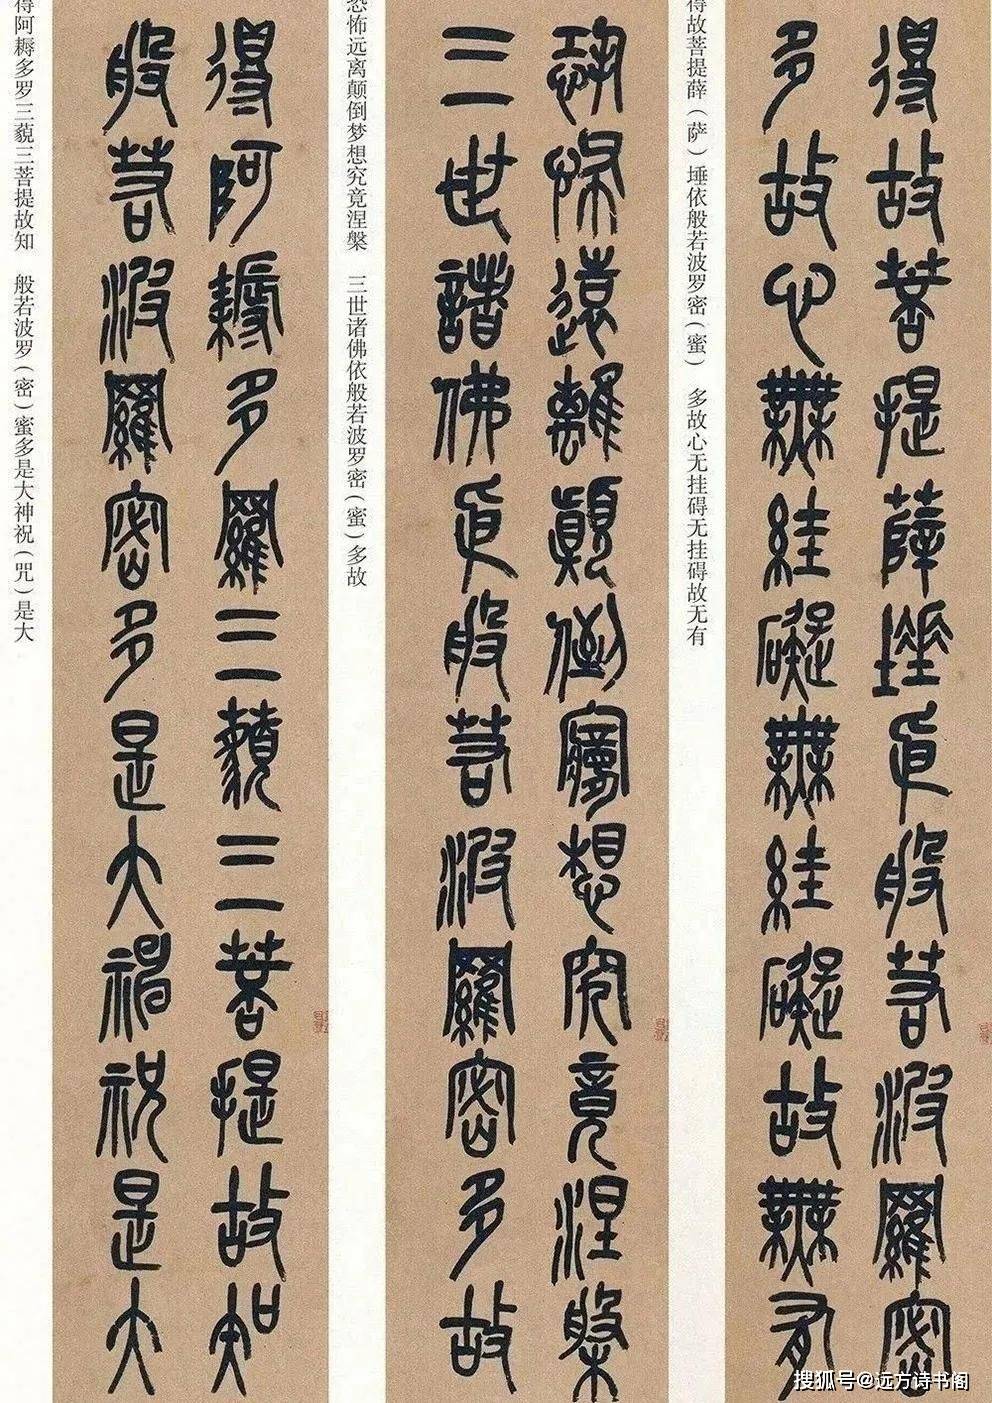 得故菩提薛埵依般若波羅密
多故心無絓礙無絓礙故無有
得故菩提薛（萨）埵依般若波罗密（蜜）　多故心无挂碍无挂碍故无有
恐怖遠離顛倒夢想究竟涅槃
三世諸佛依般若波羅密多故
恐怖远离颠倒梦想究竟涅槃　三世诸佛依般若波罗密（蜜）多故
得阿耨多羅三藐三菩提故知
般若波羅密多是大神祝是大
得阿耨多罗三藐三菩提故知　般若波罗（密）蜜多是大神祝（咒）是大
搜狐号@远方诗书阁